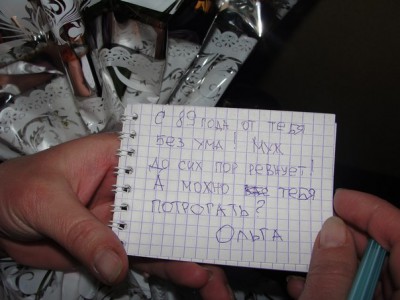 С 89 года от тебя
без ума! Муж
до сих пор ревнует!
А можно тебя
потрогать?
Ольга